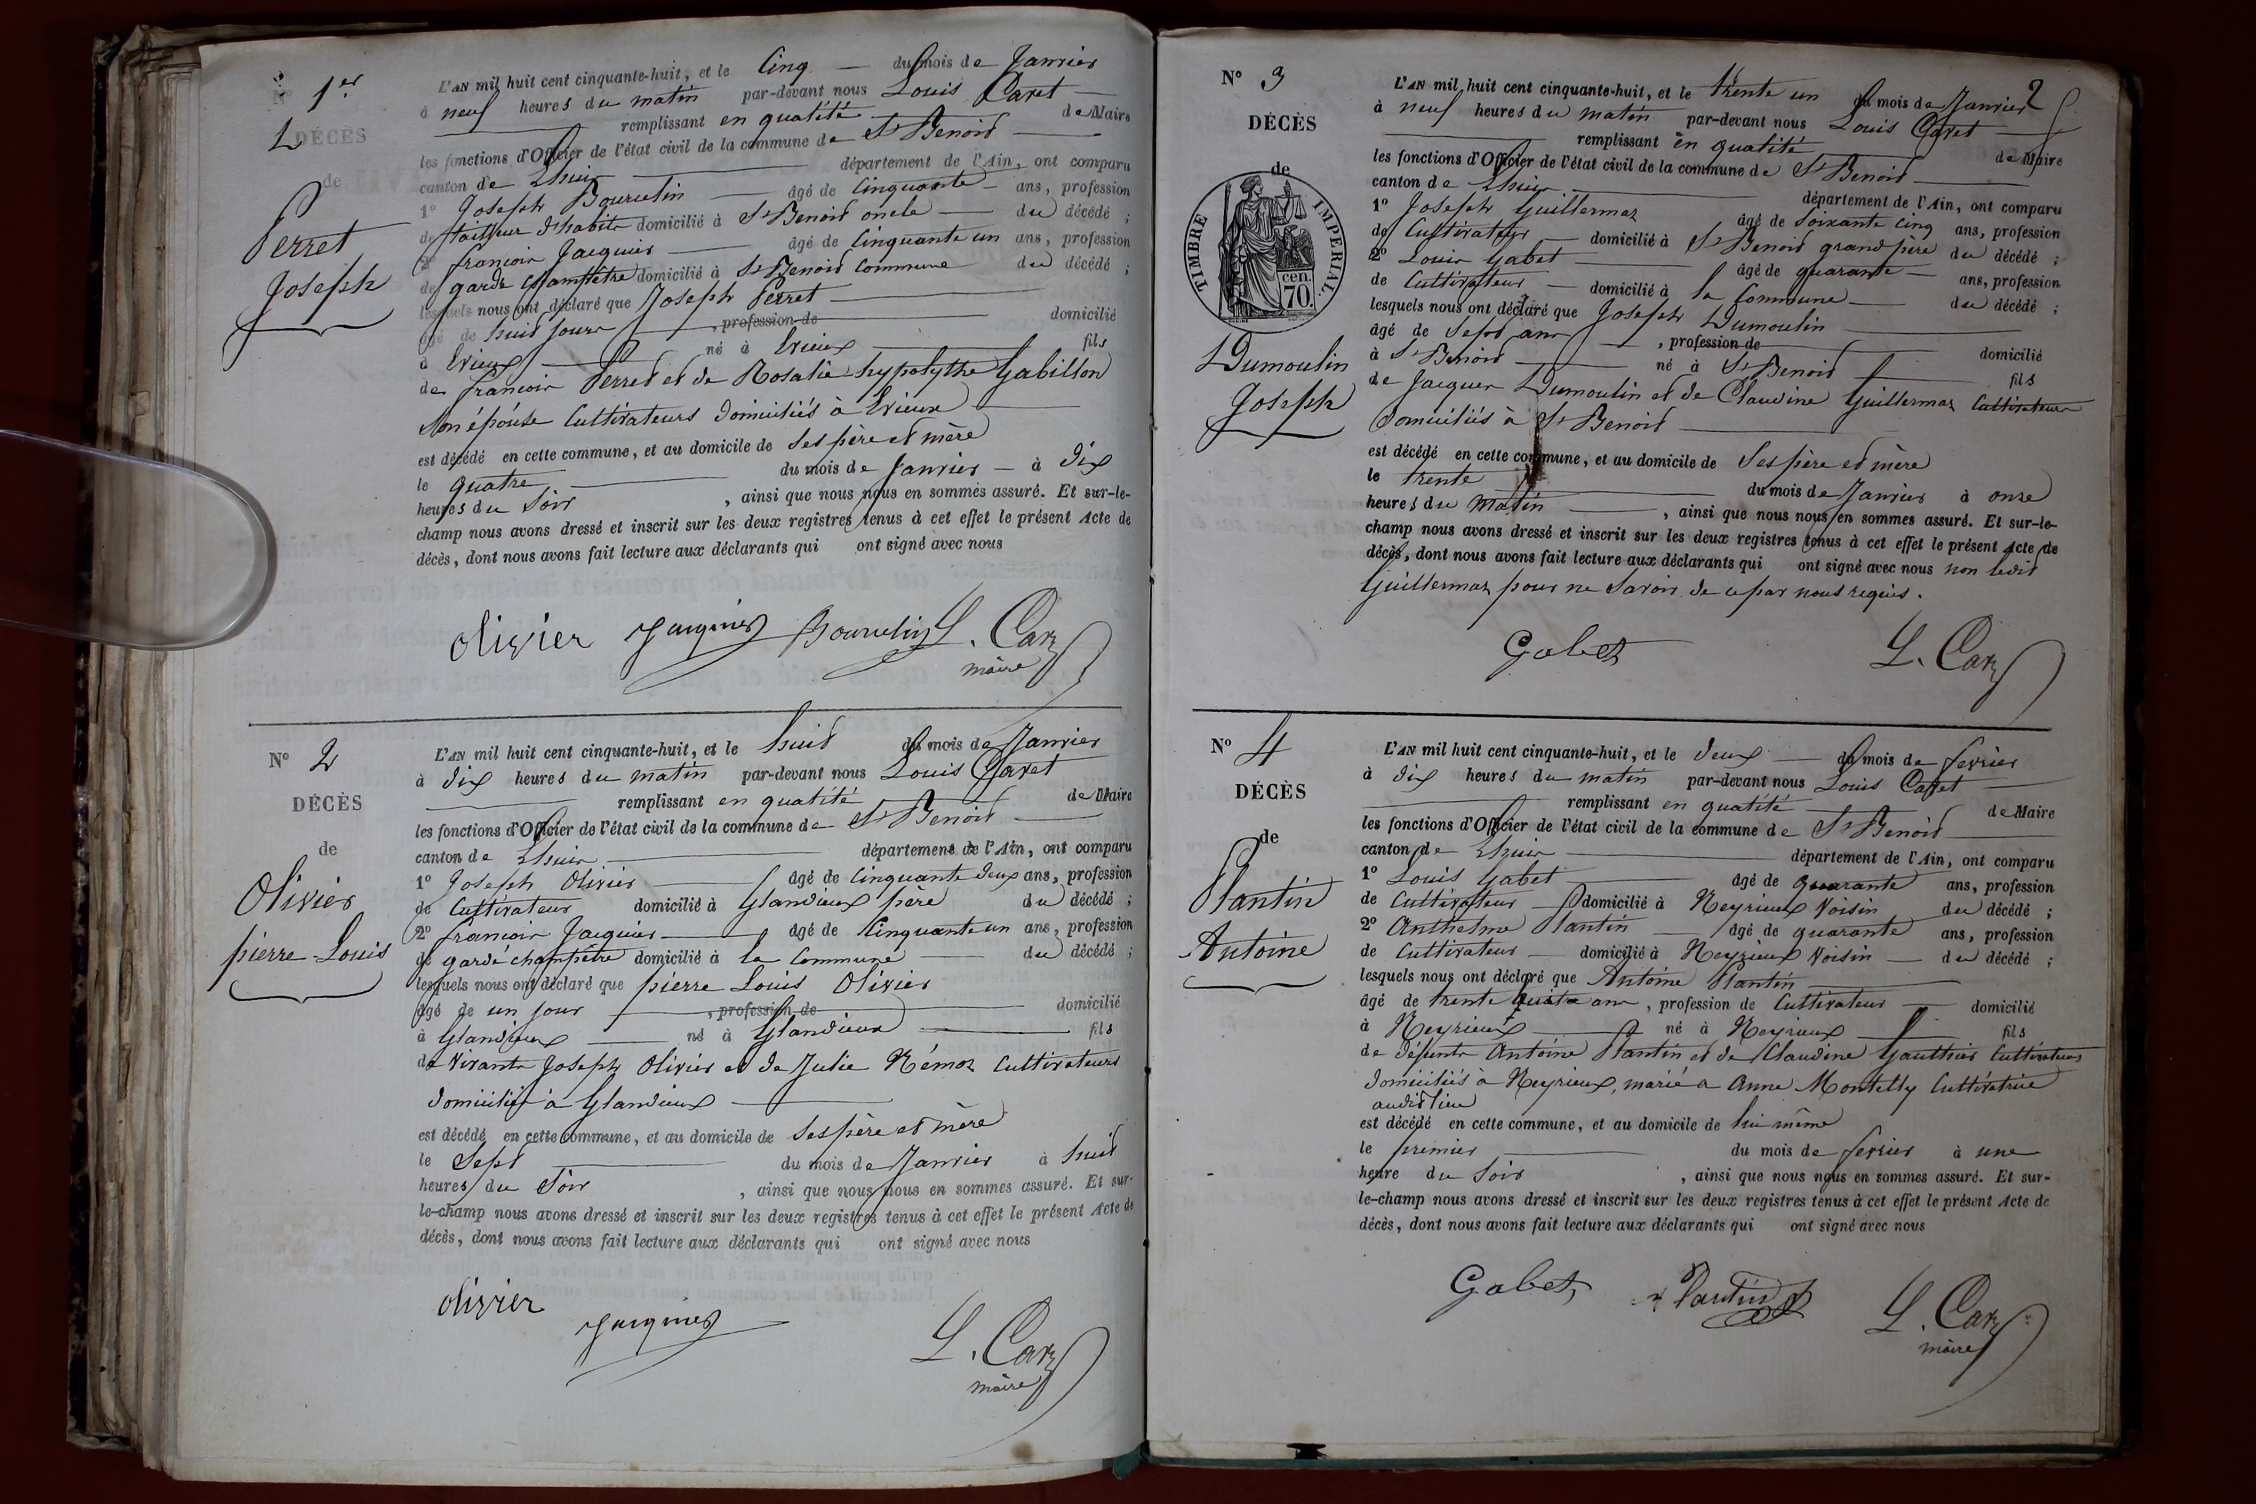 N° 1er
DÉCÈS
de
Perret
Joseph
L'AN mil huit cent cinquante-huit, et le Cinq du mois de Janvier
à neuf heures du matin par-devant nous Louis Caret
remplissant en qualité de Maire
les fonctions d'Officier de l'état civil de la commune de St Benoit
canton de Lhuis département de l'Ain, ont comparu
1° Joseph Bourcelin âgé de Cinquante ans, profession
de tailleur d'habits domicilié à St Benoit oncle du décédé ;
2° françois Jacquier âgé de Cinquante un ans, profession
de garde champêtre domicilié à St Benoit Commune du décédé ;
lesquels nous ont déclaré que Joseph Perret
âgé de huit jours , profession de domicilié
à Evieux né à Evieux fils
de françois Perret et de Rosalie hypolythe Gabillon
son épouse Cultivateurs domiciliés à Evieux
est décédé en cette commune, et au domicile de Ses père et mère
le quatre du mois de Janvier à dix
heures du Soir , ainsi que nous nous en sommes assuré. Et sur-le-
champ nous avons dressé et inscrit sur les deux registres tenus à cet effet le présent Acte de
décès, dont nous avons fait lecture aux déclarants qui ont signé avec nous
olivier Jacquier Bourcelin L. Car
maire
N° 2
DÉCÈS
de
Olivier
pierre Louis
L'AN mil huit cent cinquante-huit, et le huit du mois de Janvier
à dix heures du matin par-devant nous Louis Caret
remplissant en qualité de Maire
les fonctions d'Officier de l'état civil de la commune de St Benoit
canton de Lhuis département de l'Ain, ont comparu
1° Joseph Olivier âgé de Cinquante deux ans, profession
de Cultivateur domicilié à Glandieux père du décédé ;
2° françois Jacquier âgé de Cinquante un ans, profession
de garde champêtre domicilié à la Commune du décédé ;
lesquels nous ont déclaré que pierre Louis Olivier
âgé de un jour , profession de domicilié
à Glandieux né à Glandieux fils
de vivants Joseph Olivier et de Julie Rémoz Cultivateurs
domiciliés à Glandieux
est décédé en cette commune, et au domicile de Ses père et mère
le Sept du mois de Janvier à huit
heures du Soir , ainsi que nous nous en sommes assuré. Et sur-
le-champ nous avons dressé et inscrit sur les deux registres tenus à cet effet le présent Acte de
décès, dont nous avons fait lecture aux déclarants qui ont signé avec nous
olivier
Jacquier
L. Car
maire
2
N° 3
DÉCÈS
de
TIMBRE IMPERIAL.
cen.
70.
Dumoulin
Joseph
L'AN mil huit cent cinquante-huit, et le trente un du mois de Janvier
à neuf heures du matin par-devant nous Louis Caret
remplissant en qualité de Maire
les fonctions d'Officier de l'état civil de la commune de St Benoit
canton de Lhuis département de l'Ain, ont comparu
1° Joseph Guillermaz âgé de Soixante cinq ans, profession
de Cultivateur domicilié à St Benoit grand père du décédé ;
2° Louis Gabet âgé de quarante ans, profession
de Cultivateur domicilié à la Commune du décédé ;
lesquels nous ont déclaré que Joseph Dumoulin
âgé de Sept ans , profession de domicilié
à St Benoit né à St Benoit fils
de Jacques Dumoulin et de Claudine Guillermaz Cultivateurs
domiciliés à St Benoit
est décédé en cette commune, et au domicile de Ses père et mère
le trente du mois de Janvier à onze
heures du matin , ainsi que nous nous en sommes assuré. Et sur-le-
champ nous avons dressé et inscrit sur les deux registres tenus à cet effet le présent Acte de
décès, dont nous avons fait lecture aux déclarants qui ont signé avec nous non ledit
Guillermaz pour ne Savoir de ce par nous requis.
Gabet L. Car
N° 4
DÉCÈS
de
Plantin
Antoine
L'AN mil huit cent cinquante-huit, et le deux du mois de fevrier
à dix heures du matin par-devant nous Louis Caret
remplissant en qualité de Maire
les fonctions d'Officier de l'état civil de la commune de St Benoit
canton de Lhuis département de l'Ain, ont comparu
1° Louis Gabet âgé de quarante ans, profession
de Cultivateur domicilié à Neyrieux Voisin du décédé ;
2° Anthelme Plantin âgé de quarante ans, profession
de Cultivateur domicilié à Neyrieux Voisin du décédé ;
lesquels nous ont déclaré que Antoine Plantin
âgé de trente ans , profession de Cultivateur domicilié
à Neyrieux né à Neyrieux fils
de défunts Antoine Plantin et de Claudine Gauthier Cultivateurs
domiciliés à Neyrieux, marié a Anne Montelly Cultivatrice
audit lieu
est décédé en cette commune, et au domicile de lui même
le premier du mois de fevrier à une
heure du Soir , ainsi que nous nous en sommes assuré. Et sur-
le-champ nous avons dressé et inscrit sur les deux registres tenus à cet effet le présent Acte de
décès, dont nous avons fait lecture aux déclarants qui ont signé avec nous
Gabet Plantin L. Car
maire